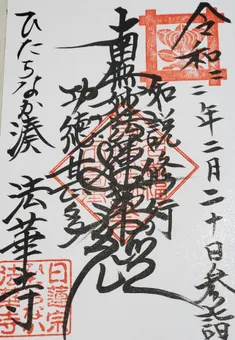 令和三年二月二十日参詣
如説修行
南無妙法蓮華経
功徳甚多
ひたちなか湊 法華寺
日蓮宗
法華寺